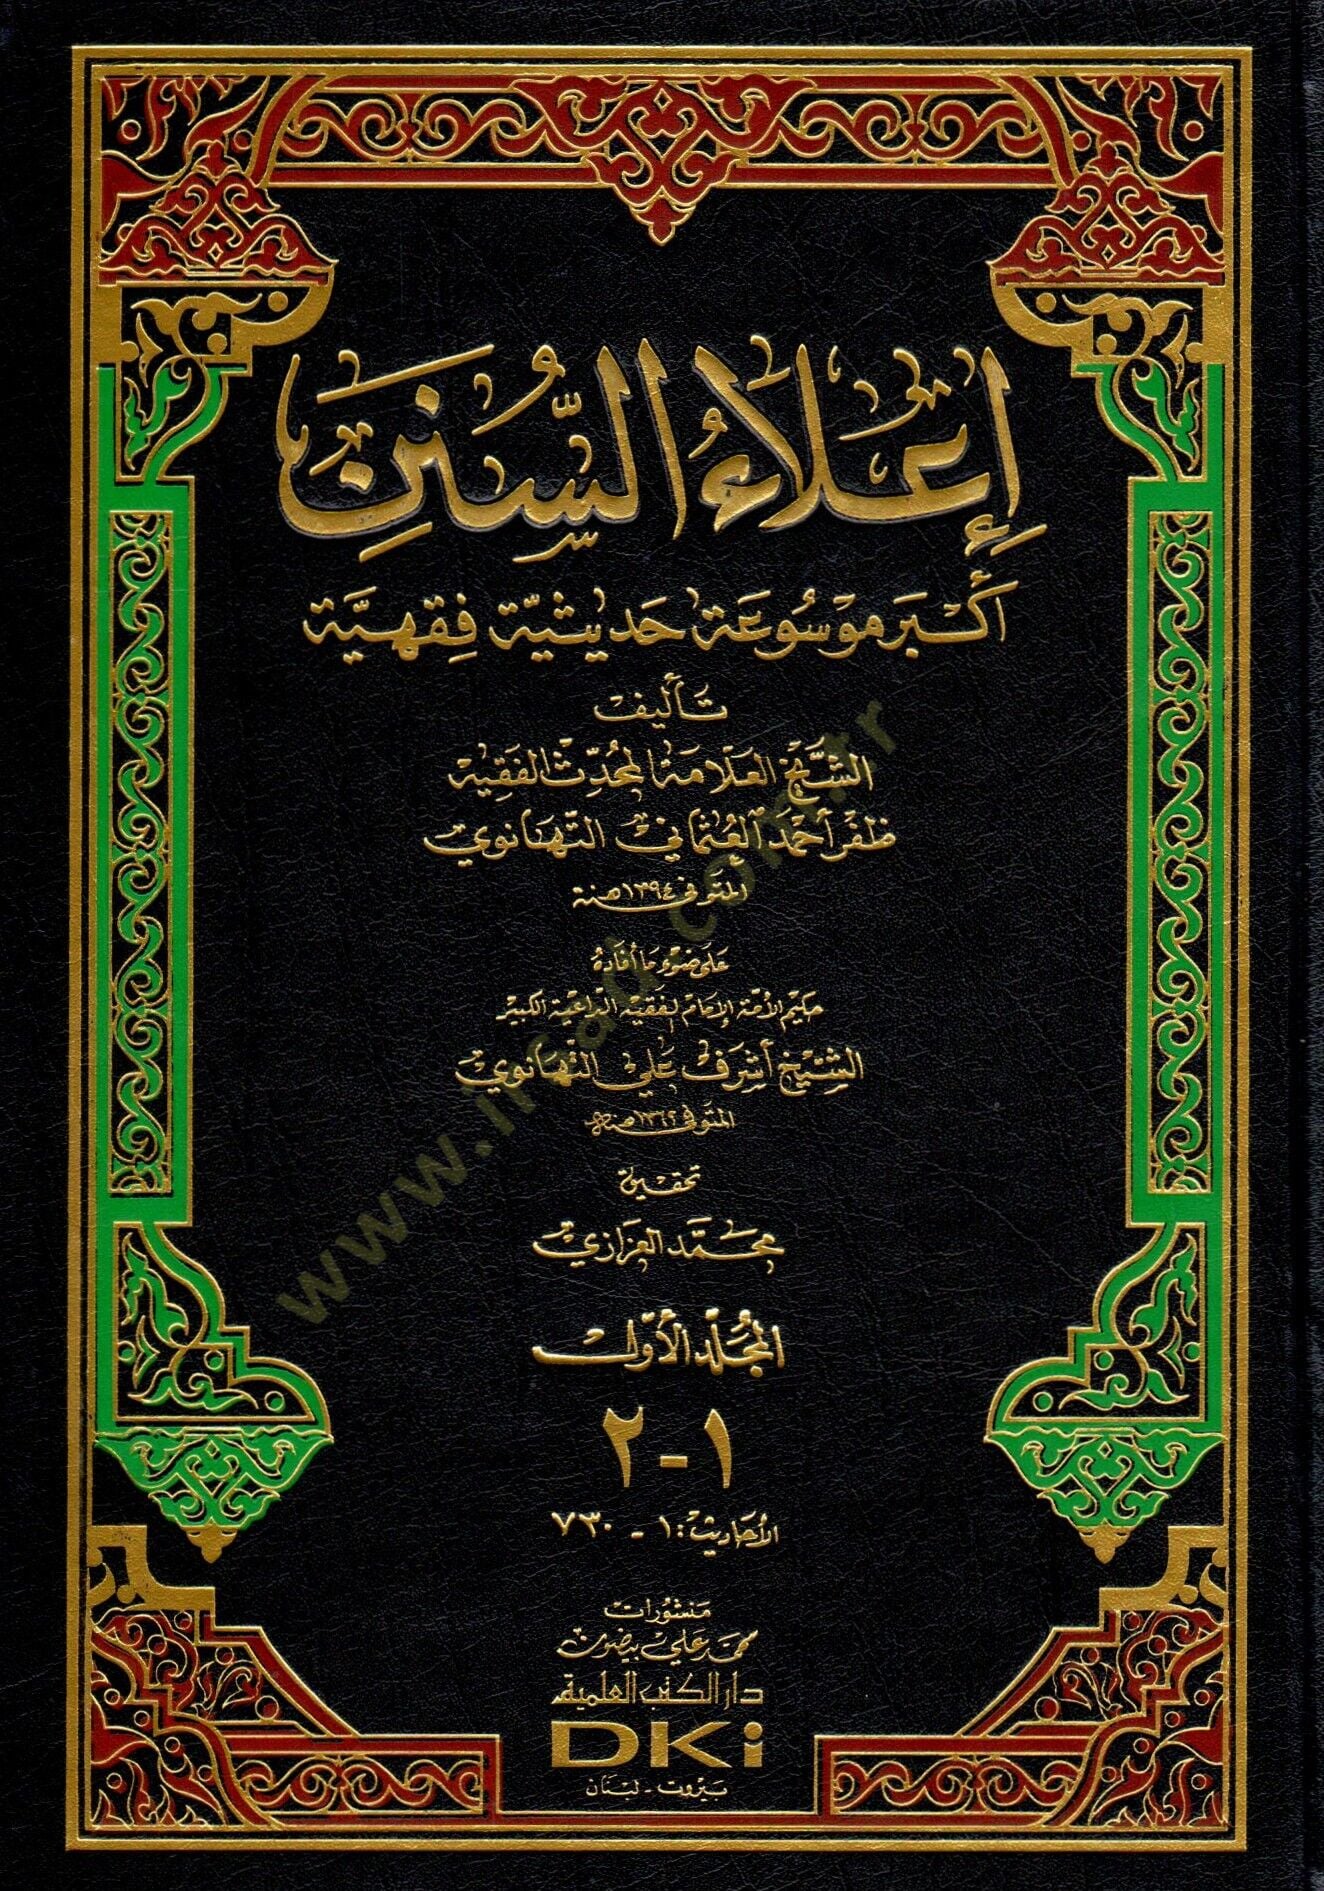 إِعْلَاءُ السُّنَنِ
أَكْبَر مَوْسُوعَة حَديثيَّة فِقهيَّة
تَأليف
الشَّيْخ العَلَّامَة المُحَدِّث الفَقِيه
ظفر أحمَد العُثماني التّهَانوي
المتَوفى ١٣٩٤ هـنة
عَلى ضَوْء مَا أفَادَهُ
حكيم الأمّة الإمَام الفَقيه الدّاعيَة الكبير
الشيخ أشرَف عَلي التّهَانوي
المتَوفى ١٣٦٢ هـ
تحقيق
محمَّد العزازي
المُجلّد الأوّل
١ - ٢
الأحَاديث: ١ - ٧٣٠
مَنشورات
محمّد عَلي بيضون
دار الكتب العلمية
DKi
بَيروت - لبْنان
www.irsad.com.tr